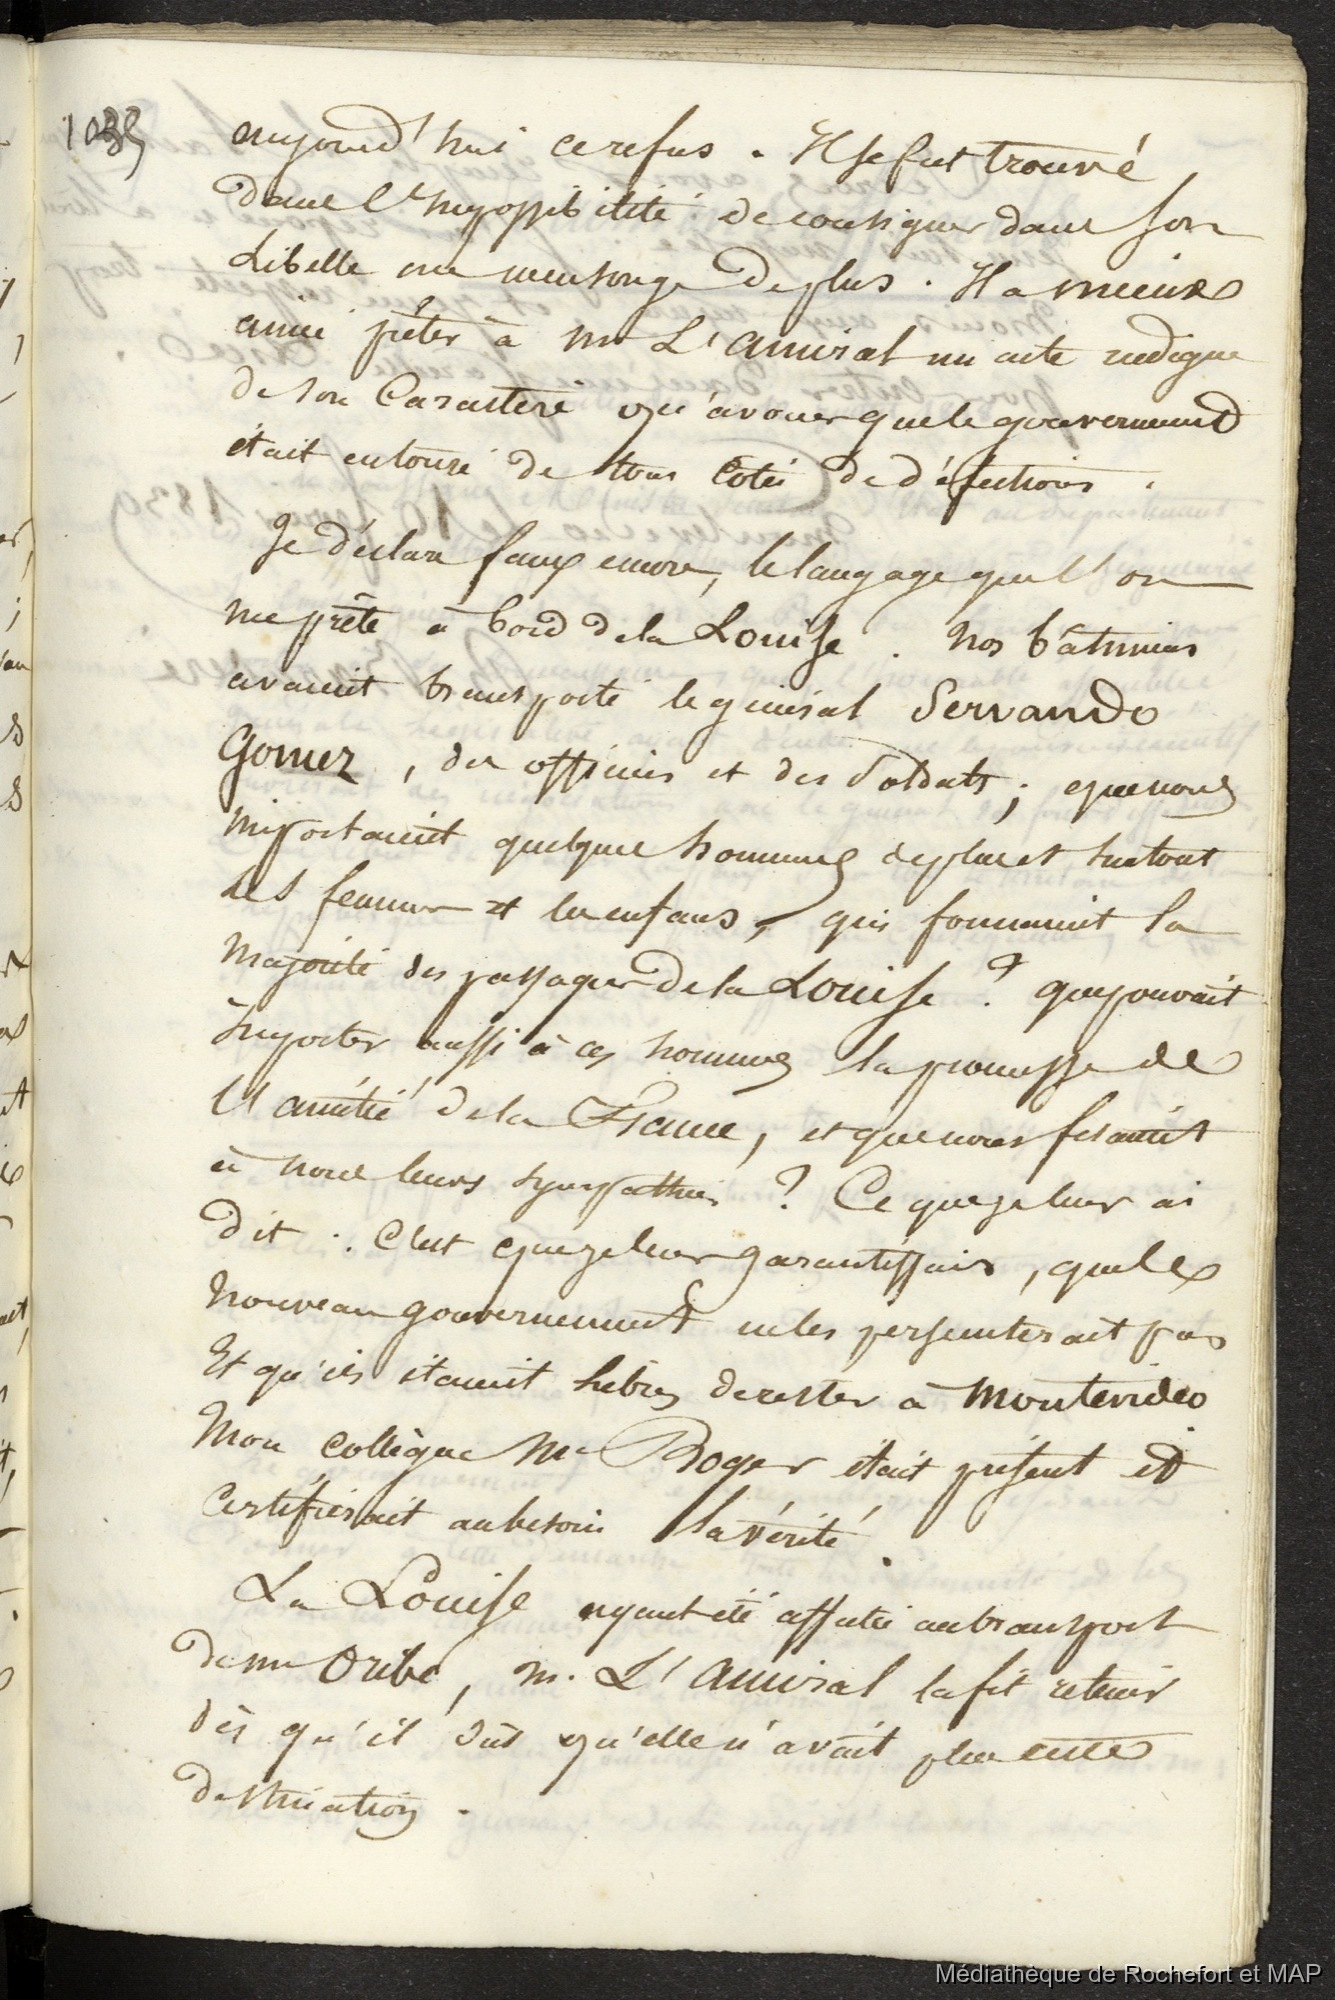 1035
aujourd'hui ce refus. Il se fut trouvé
dans l'impossibilité de consigner dans son
Libelle un mensonge de plus. Il a mieux
aimé prêter à Mr L'amiral un acte indigne
de son Caractère qu'avouer que le gouvernement
était entouré de tous côtés de défections.
Je déclare faux encore, le langage que l'on
me prête à bord de la Louise. Nos bâtimens
avaient transporté le général Servando
Gomez, des officiers et des soldats; que nous
importaient quelques hommes de plus et surtout
les femmes et les enfans, qui formaient la
majorité des passagers de la Louise? que pouvait
importer aussi à ces hommes la promesse de
l'amitié de la France, et que nous fesaient
à nous leurs sympathies? Ce que je leur ai
dit: C'est que je leur garantissais, que le
nouveau gouvernement ne les persecuterait pas
Et qu'ils étaient libres de rester à Montevideo
Mon collègue Mr Roger était présent et
Certifierait au besoin la vérité.
La Louise ayant été affectée au transport
de Mr Oribe, M. L'amiral la fit retenir
dès qu'il sût qu'elle n'avait plus cette
destination.
Médiathèque de Rochefort et MAP